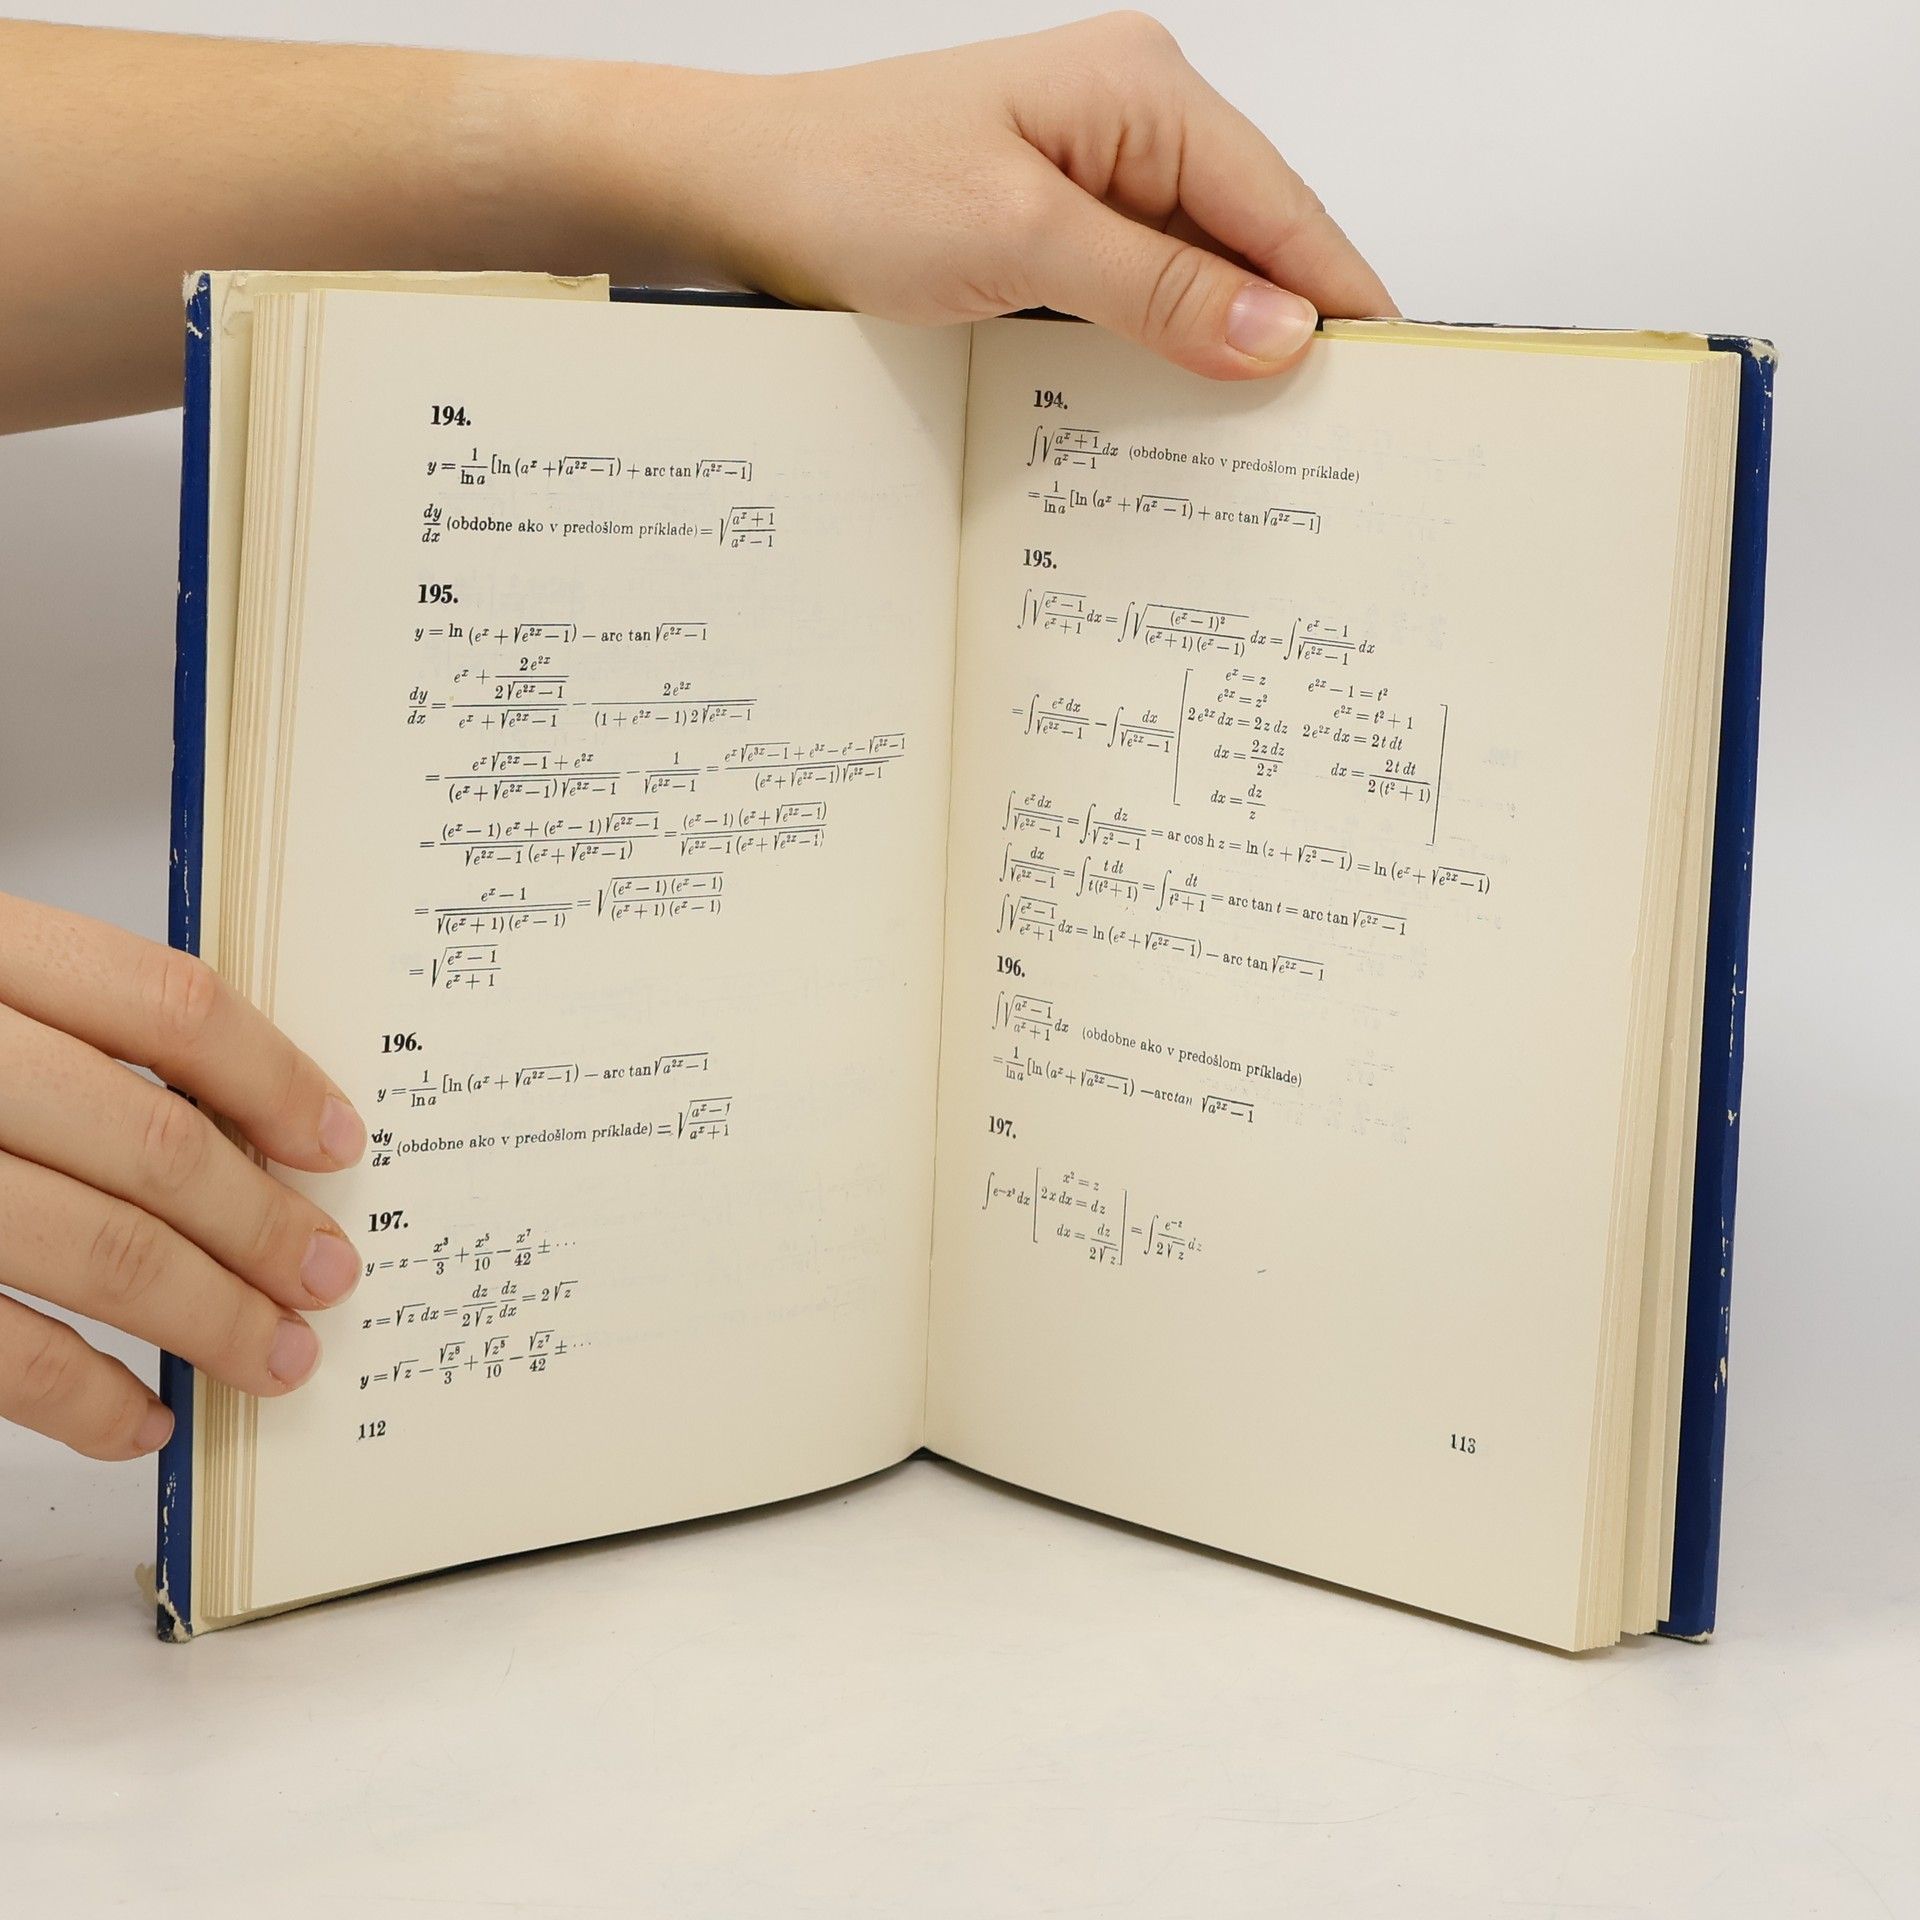 194.
y = 1/ln a [ln (a^x + √(a^{2x} − 1)) + arc tan √(a^{2x} − 1)]
dy/dx (obdobne ako v predošlom príklade) = √((a^x + 1)/(a^x − 1))
195.
y = ln (e^x + √(e^{2x} − 1)) − arc tan √(e^{2x} − 1)
dy/dx = (e^x + 2e^{2x}/(2√(e^{2x} − 1)))/(e^x + √(e^{2x} − 1)) − 2e^{2x}/((1 + e^{2x} − 1) 2√(e^{2x} − 1))
= (e^x √(e^{2x} − 1) + e^{2x})/((e^x + √(e^{2x} − 1)) √(e^{2x} − 1)) − 1/√(e^{2x} − 1) = (e^x √(e^{3x} − 1) + e^{3x} − e^x − √(e^{2x} − 1))/((e^x + √(e^{2x} − 1)) √(e^{2x} − 1))
= ((e^x − 1) e^x + (e^x − 1) √(e^{2x} − 1))/(√(e^{2x} − 1) (e^x + √(e^{2x} − 1))) = ((e^x − 1) (e^x + √(e^{2x} − 1)))/(√(e^{2x} − 1) (e^x + √(e^{2x} − 1)))
= (e^x − 1)/√((e^x + 1) (e^x − 1)) = √(((e^x − 1) (e^x − 1))/((e^x + 1) (e^x − 1)))
= √((e^x − 1)/(e^x + 1))
196.
y = 1/ln a [ln (a^x + √(a^{2x} − 1)) − arc tan √(a^{2x} − 1)
dy/dx (obdobne ako v predošlom príklade) = √((a^x − 1)/(a^x + 1))
197.
y = x − x^3/3 + x^5/10 − x^7/42 ± ···
x = √z dx = dz/(2√z) dz/dx = 2√z
y = √z − √z^3/3 + √z^5/10 − √z^7/42 ± ···
112
194.
∫√((a^x + 1)/(a^x − 1)) dx (obdobne ako v predošlom príklade)
= 1/ln a [ln (a^x + √(a^x − 1)) + arc tan √(a^{2x} − 1)]
195.
∫√((e^x − 1)/(e^x + 1)) dx = ∫√((e^x − 1)^2/((e^x + 1) (e^x − 1))) dx = ∫(e^x − 1)/√(e^{2x} − 1) dx
= ∫e^x dx/√(e^{2x} − 1) − ∫dx/√(e^{2x} − 1)
e^x = z e^{2x} − 1 = t^2
e^{2x} = z^2 e^{2x} = t^2 + 1
2e^{2x} dx = 2z dz 2e^{2x} dx = 2t dt
dx = 2z dz/2z^2 dx = 2t dt/(2 (t^2 + 1))
dx = dz/z
∫e^x dx/√(e^{2x} − 1) = ∫dz/√(z^2 − 1) = ar cos h z = ln (z + √(z^2 − 1)) = ln (e^x + √(e^{2x} − 1))
∫dx/√(e^{2x} − 1) = ∫t dt/(t(t^2 + 1)) = ∫dt/(t^2 + 1) = arc tan t = arc tan √(e^{2x} − 1)
∫√((e^x − 1)/(e^x + 1)) dx = ln (e^x + √(e^{2x} − 1)) − arc tan √(e^{2x} − 1)
196.
∫√((a^x − 1)/(a^x + 1)) dx (obdobne ako v predošlom príklade)
= 1/ln a [ln (a^x + √(a^{2x} − 1)) − arctan √(a^{2x} − 1)
197.
∫e^{−x^2} dx [x^2 = z
2x dx = dz
dx = dz/(2√z)] = ∫e^{−z}/(2√z) dz
113